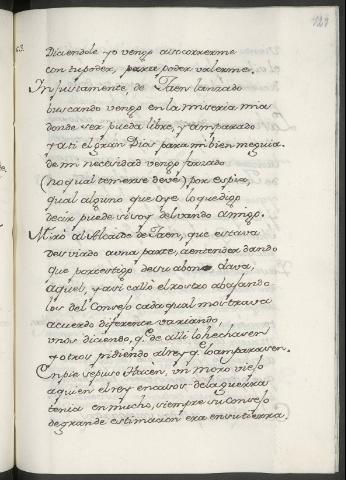 129
63.
Diciendole yo vengo a socorrerme
con tu poder, para poder valerme.
Injustamente, de Jaen lanzado
buscando vengo en la miseria mia
donde ser pueda libre, y amparado
y a ti el gran Dios para mi bien me guia.
de mi necesidad vengo forzado
(no qual temerse deve) por espia,
qual alguno que oye lo que digo
decir puede si soy del vando amigo.
Miró al Alcaide de Jaen, que estava
desviado a una parte, a entender dando
que por testigo de su abono dava,
aquel, y asi calló el rostro abajando
los del Consejo cada qual mostrava
acuerdo diferente variando,
unos diciendo, q.e de alli lo hechasen
y otros pidiendo al rey q.e lo amparasen.
En pie se puso Hacen, un moro viejo
a quien el rey en casos de la guerra
tenia en mucho, siempre su consejo
de grande estimacion era en su tierra.